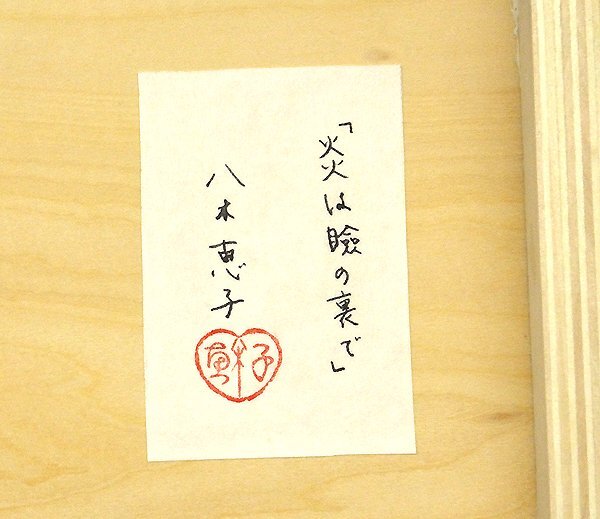 「炎は瞼の裏で」
八木恵子